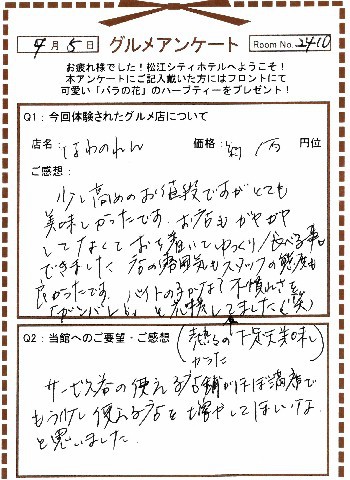 4月5日 グルメアンケート Room No. 2410
お疲れ様でした！松江シティホテルへようこそ！
本アンケートにご記入戴いた方にはフロントにて
可愛い「バラの花」のハーブティーをプレゼント！
Q1：今回体験されたグルメ店について
店名：ほわのれん 価格：約 万 円位
ご感想：
少し高めのお値段ですがとても
美味しかったです。お店もガヤガヤ
してなくておち着いてゆっくり食べる事が
できました 店の雰囲気もスタッフの態度も
良かったです。バイトの子かな？不慣れさを
「ガンバレ〜」と応援してました（笑）
Q2：当館へのご要望・ご感想
サービス券の使える店舗がほぼ満席で
もう少し使える店を増やしてほしいな
と思いました